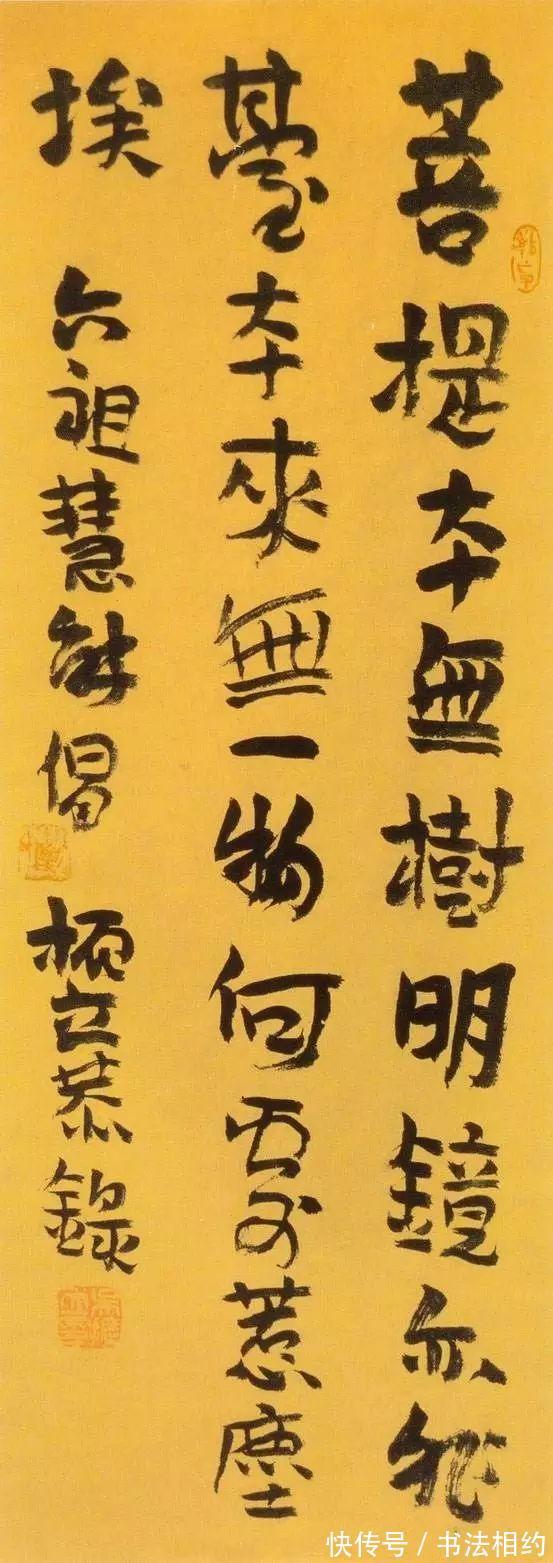 菩提本無樹明鏡亦非
臺本來無一物何處惹塵
埃 六祖慧能偈 立恭錄
快传号 / 书法相约